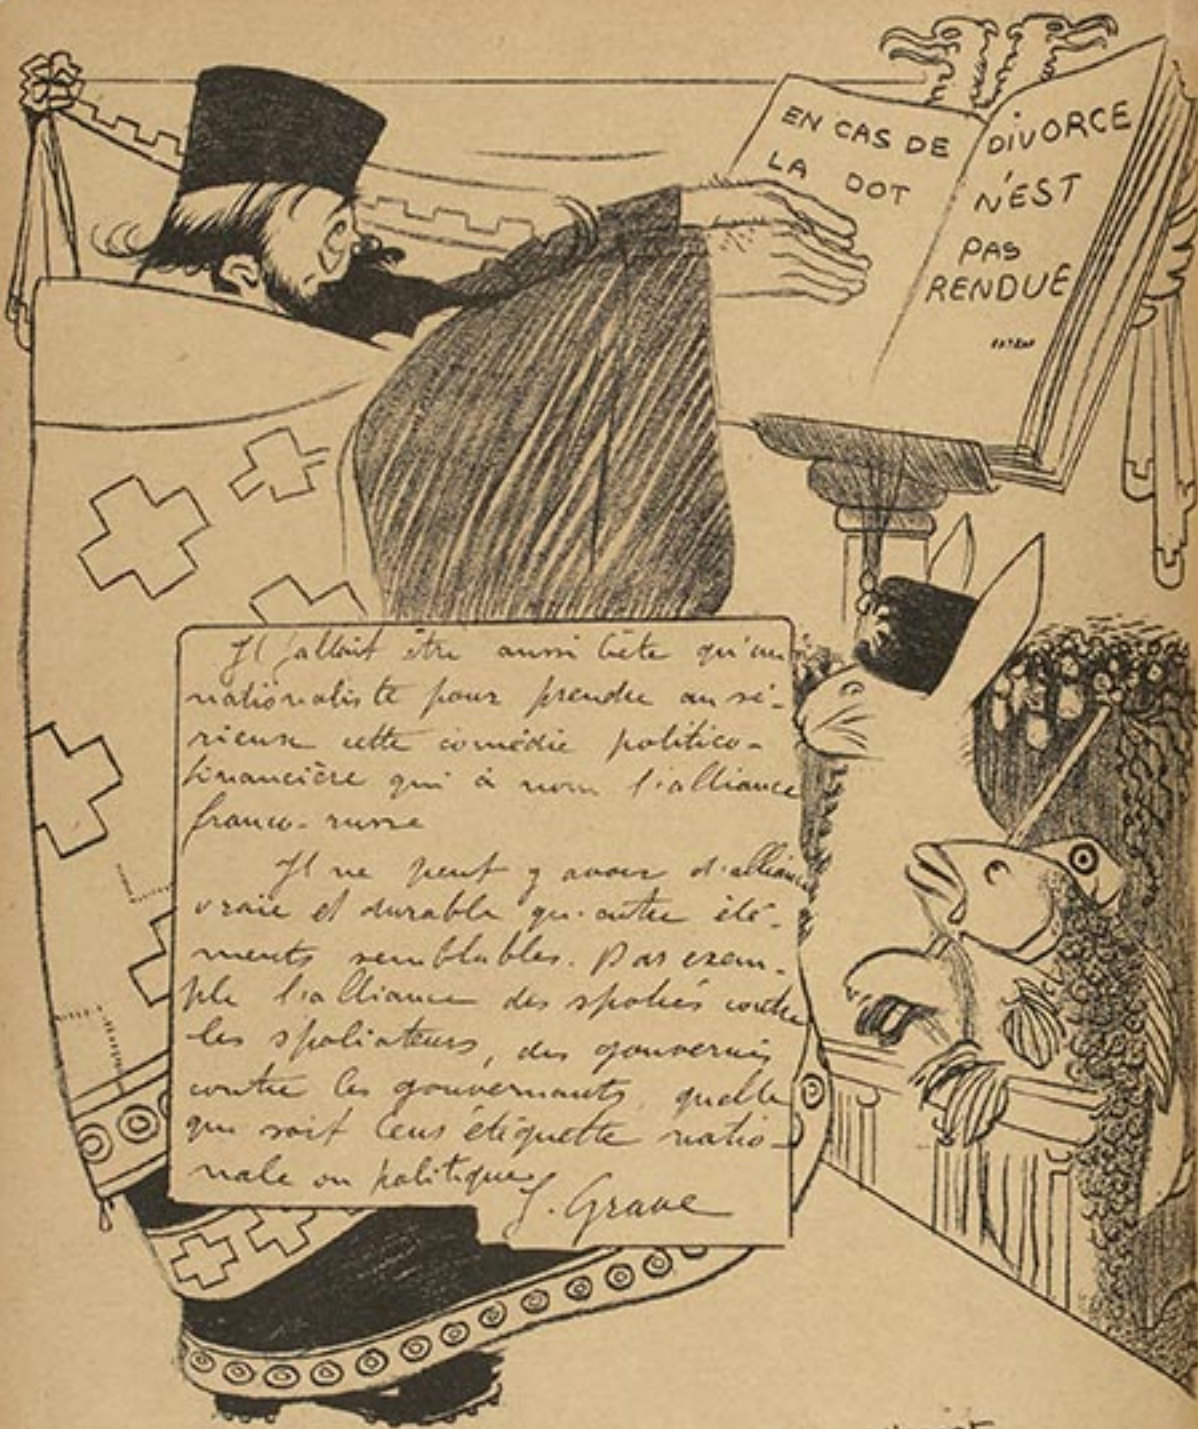 EN CAS DE
LA DOT
DIVORCE
N'EST
PAS
RENDUE
Il fallait être aussi bête qu'un
nationaliste pour prendre au sé-
rieux cette comédie politico-
financière qui a nom l'alliance
franco-russe
Il ne peut y avoir d'alliance
vraie et durable qu'entre élé-
ments semblables. Par exem-
ple l'alliance des spoliés contre
les spoliateurs, des gouvernés
contre les gouvernants, quelle
que soit leur étiquette natio-
nale ou politique
J. Grave